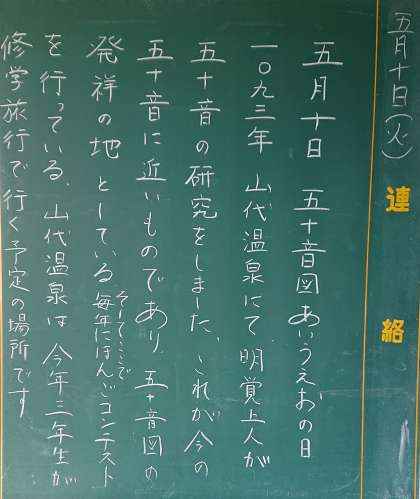 五月十日(火)
連絡
五月十日 五十音図あいうえおの日
一〇九三年 山代温泉にて、明覚上人が
五十音の研究をしました、これが今の
五十音に近いものであり、五十音図の
発祥の地としている
そしてここで
毎年にほんごコンテスト
を行っている、山代温泉は今年三年生が
修学旅行で行く予定の場所です